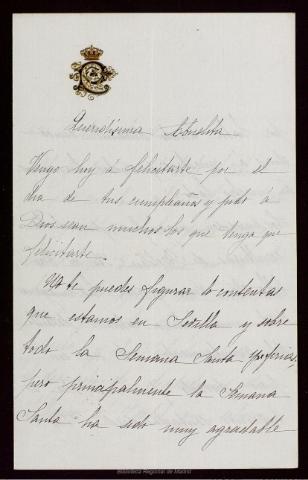 Queridisima Abuelita
Vengo hoy á felicitarte por el
dia de tus cumpleaños y pido á
Dios sean muchos los que tenga que
felicitarte.
No te puedes figurar lo contentas
que estamos en Sevilla y sobre
todo la Semana Santa y ferias,
pero principalmente la Semana
Santa ha sido muy agradable
Biblioteca Regional de Madrid